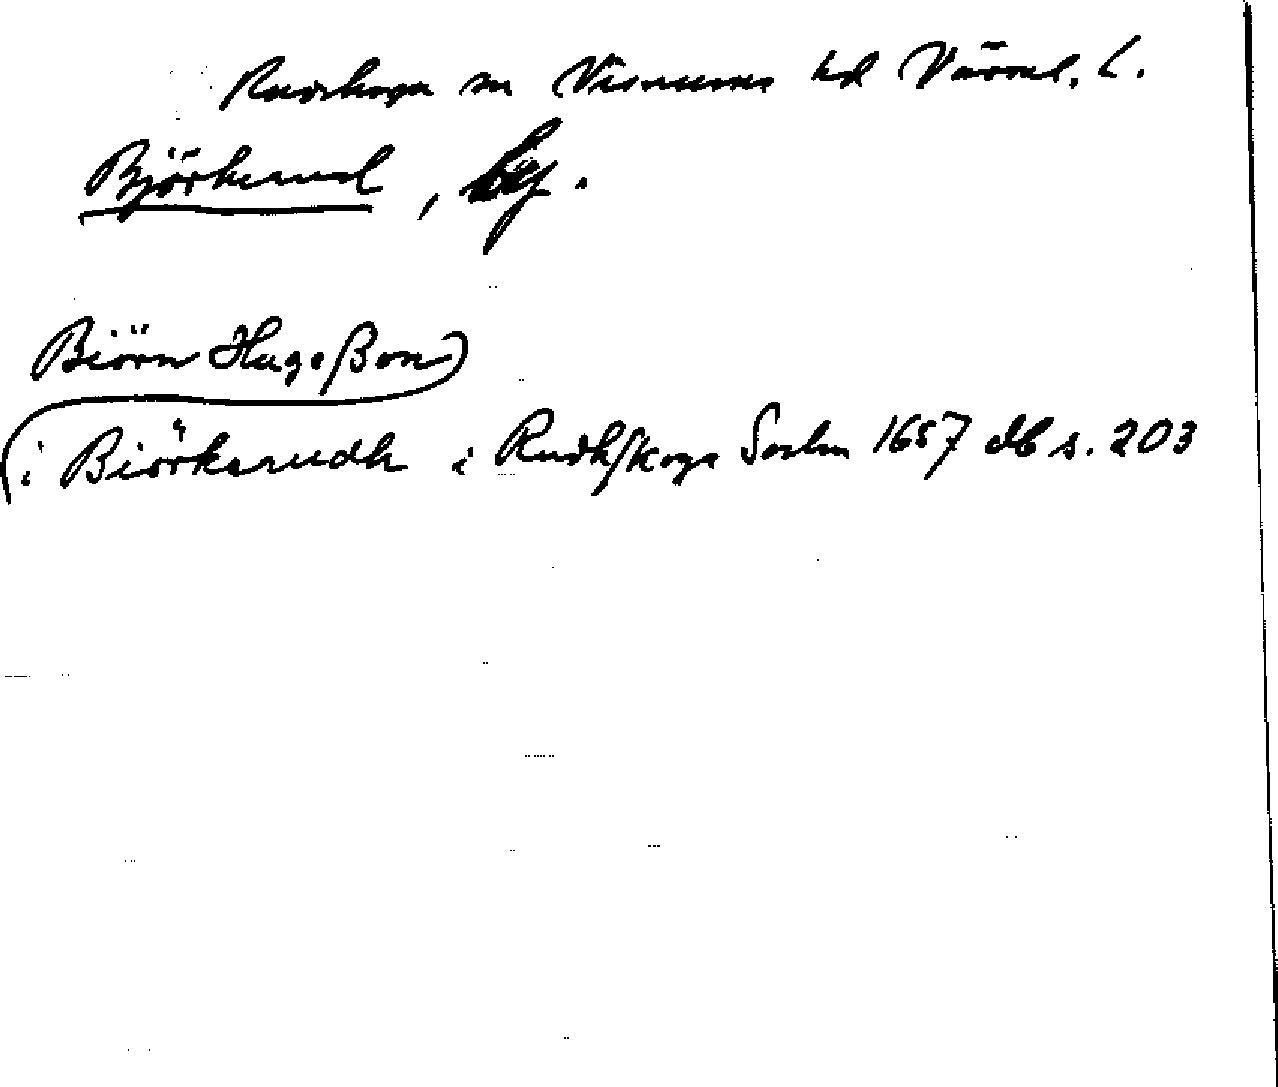 Rudskoga sn Visnums hd Värml. L.
Björkerud, by.
Biörn Hugoßon
i Biörkerudh i Rudhskoga Sochn 1657 db s. 203